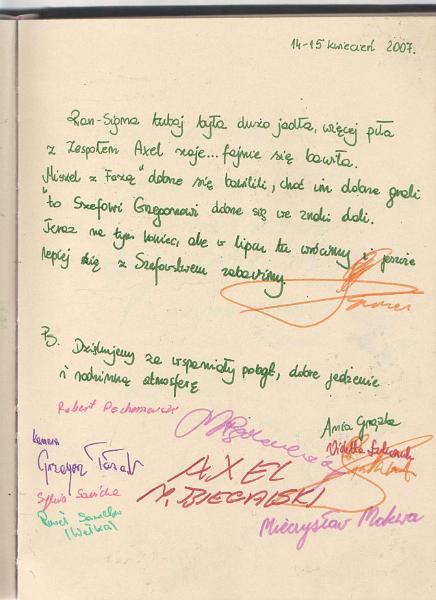 14-15 kwiecień 2007.
Ran-Sigma tutaj była dużo jadła, więcej piła
z Zespołem Axel szaje... fajnie się bawiła.
"Miszel z Faxą" dobrze się bawili, choć im dobrze grali
to Szefowi Grzegorzowi dobrze się we znaki dali.
Teraz na tym koniec, ale w lipcu tu wrócimy i jeszcze
lepiej się z Szefostwem zabawimy.
P.S. Dziękujemy za wspaniały pobyt, dobre jedzenie
i rodzinną atmosferę
Robert
Ania
Violetta
Grzegorz
AXEL
Sylwia
Paweł
(Wełka)
Mieczysław Mokwa